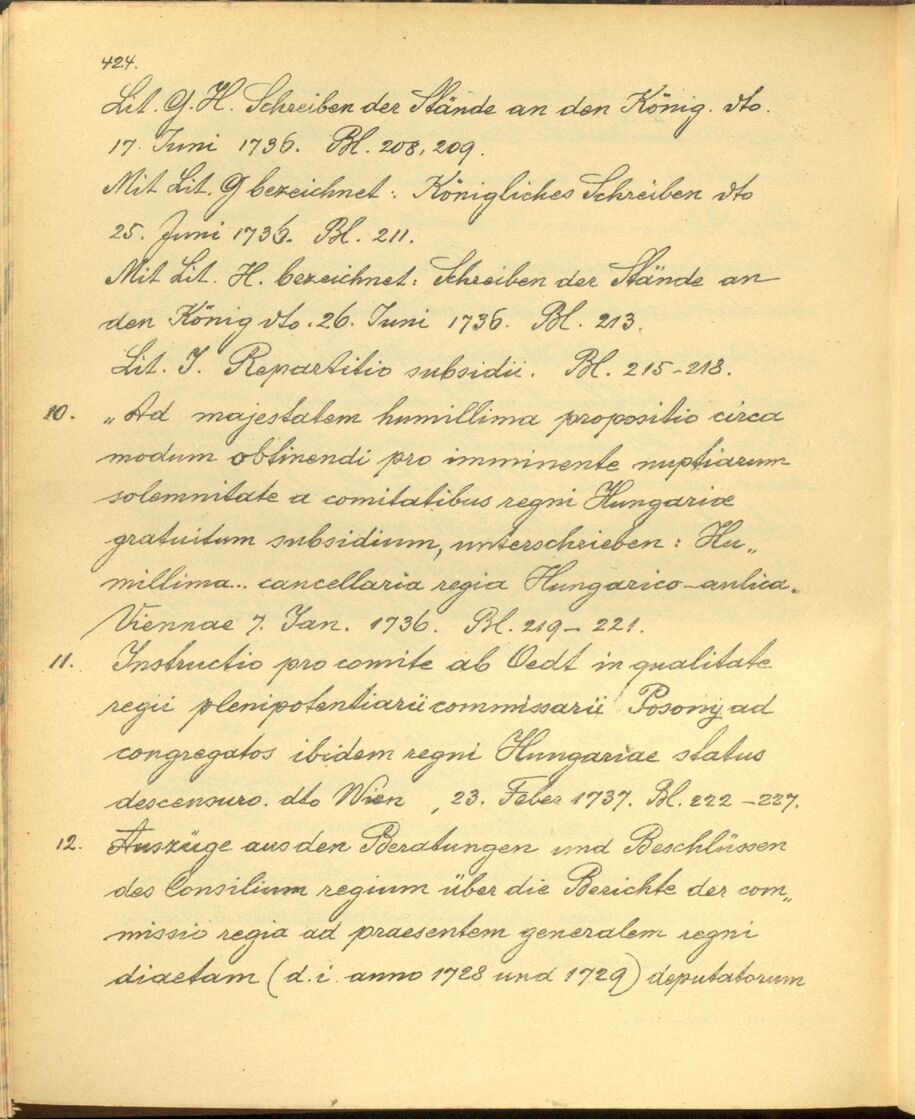 424.
Lit. G. H. Schreiben der Stände an den König. dto.
17. Juni 1736. Bl. 208, 209.
Mit Lit. G bezeichnet: Königliches Schreiben dto
25. Juni 1736. Bl. 211.
Mit Lit. H. bezeichnet: Schreiben der Stände an
den König dto. 26. Juni 1736. Bl. 213.
Lit. J. Repartitio subsidii. Bl. 215-218.
10. „Ad majestatem humillima propositio circa
modum obtinendi pro imminente nuptiarum
solemnitate a comitatibus regni Hungariæ
gratuitum subsidium, unterschrieben: Hu„
millima.. cancellaria regia Hungarico-aulica.
Viennae 7. Jan. 1736. Bl. 219-221.
11. Instructio pro comite ab Oedt in qualitate
regii plenipotentiarii commissarii Posonÿ ad
congregatos ibidem regni Hungariae status
descensuro. dto Wien, 23. Feber 1737. Bl. 222-227.
12. Auszüge aus den Beratungen und Beschlüssen
des Consilium regium über die Berichte der com„
missio regia ad praesentem generalem regni
diaetam (d. i. anno 1728 und 1729) deputatorum